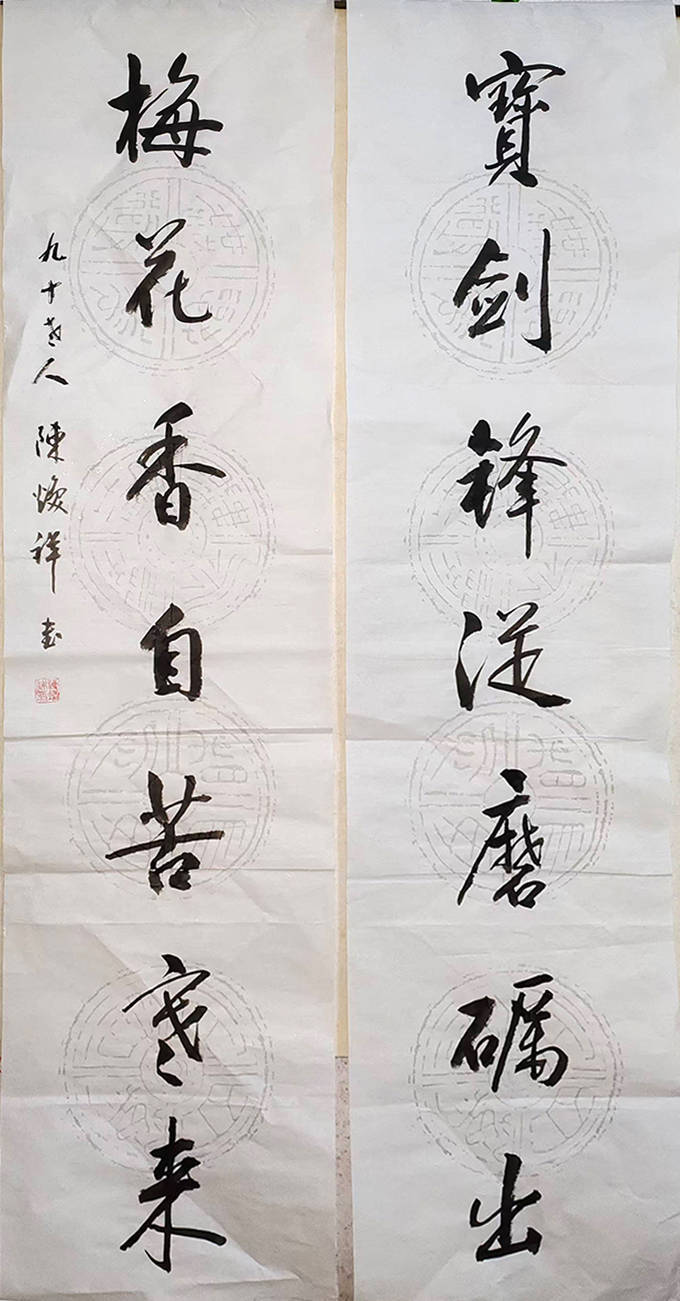 寶劍锋從磨礪出
梅花香自苦寒来
九十老人 陳焕祥 書